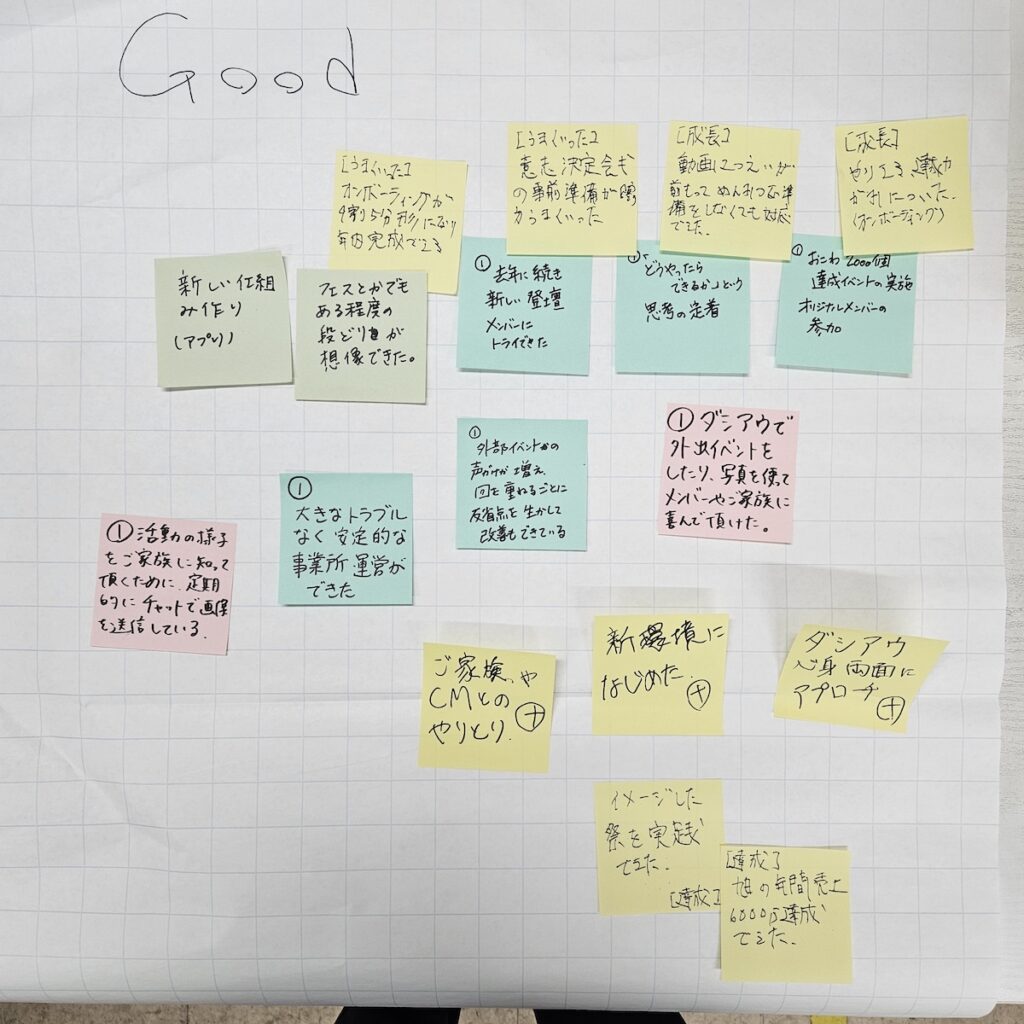 Good
[うまくいった]
オンボーディングが
9割5分形になり
年内完成できる
[うまくいった]
意志決定会も
の事前準備が
からまくいった
[成長]
動画について
前もって めんみつな準
備をしなくても対応
できた。
[成長]
やりきる
がみについた。
(オンボーディング)
新しい仕組
み作り
(アプリ)
フェスとかでも
ある程度の
段どりが
想像できた。
①
去年に続き
新しい登壇
メンバーに
トライできた
①
「どうやったら
できるか」という
思考の定着
①
おこわ 2000個
達成イベントの実施
オリジナルメンバーの
参加
①
外部イベントの
声がけが増え、
回を重ねるごとに
反省点を生かして
改善もできている
① ダシアウで
外出イベントを
したり、写真を使って
メンバーやご家族に
喜んで頂けた。
① 活動の様子
をご家族に知って
頂くために、定期
的にチャットで画像
を送信している。
①
大きなトラブル
なく安定的な
事業所運営が
できた
ご家族、や
CMとの
やりとり。
+
新環境に
なじめた。
+
ダシアウ
心身両面に
アプローチ
+
イメージした
祭を実践
できた。
[達成]
[達成]
旭の年間売上
6000万達成
できた。